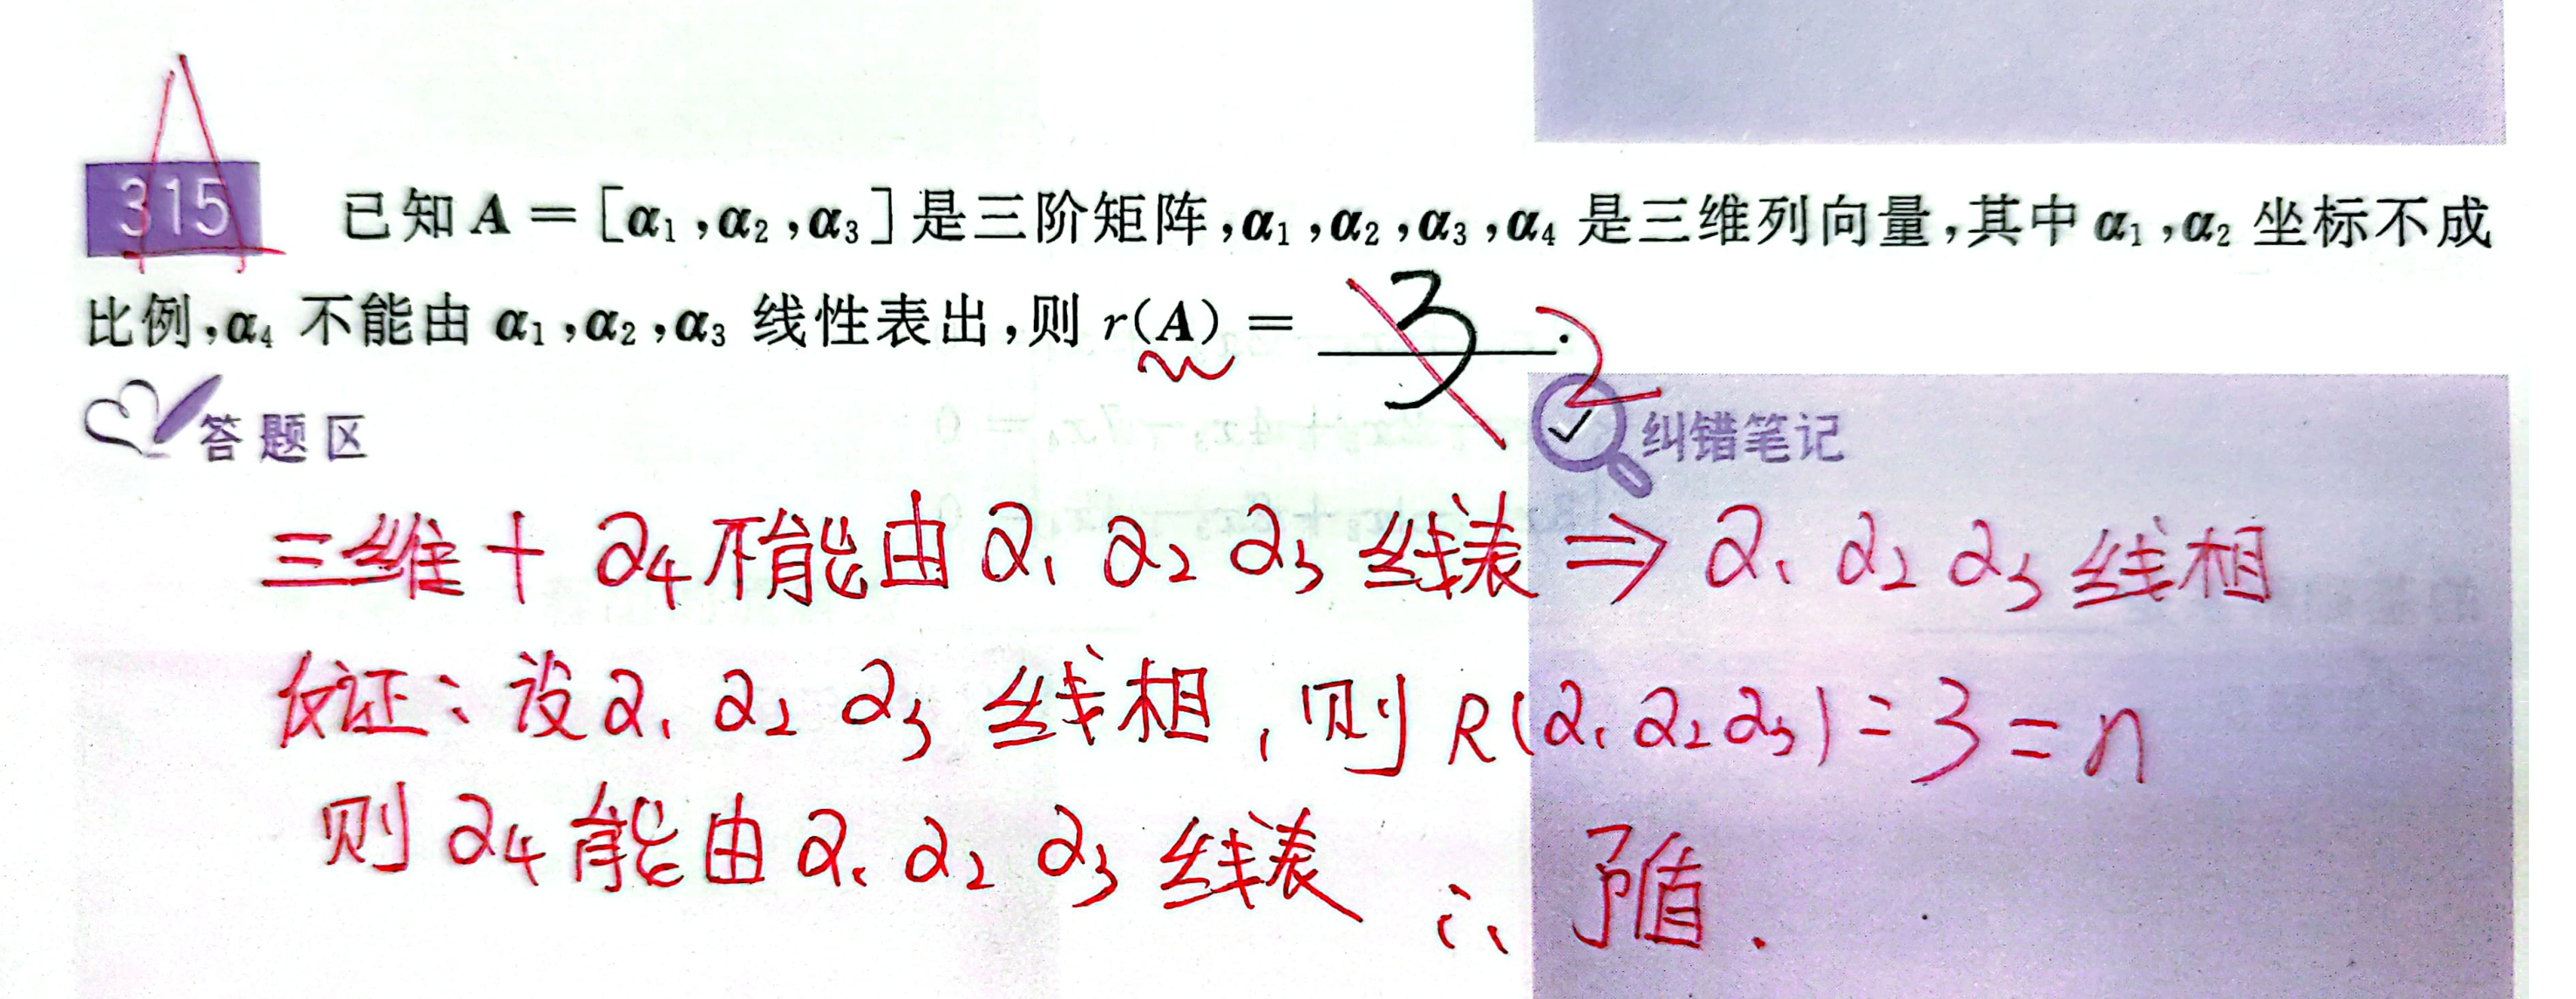 315 已知 A = [α₁,α₂,α₃] 是三阶矩阵,α₁,α₂,α₃,α₄ 是三维列向量,其中 α₁,α₂ 坐标不成
比例,α₄ 不能由 α₁,α₂,α₃ 线性表出,则 r(A) = 3 . 2
答题区
纠错笔记
三维 + α₄不能由 α₁ α₂ α₃ 线表 ⇒ α₁ α₂ α₃ 线相
反证:设 α₁ α₂ α₃ 线相,则 R(α₁ α₂ α₃) = 3 = n
则 α₄ 能由 α₁ α₂ α₃ 线表 ∴ 矛盾.